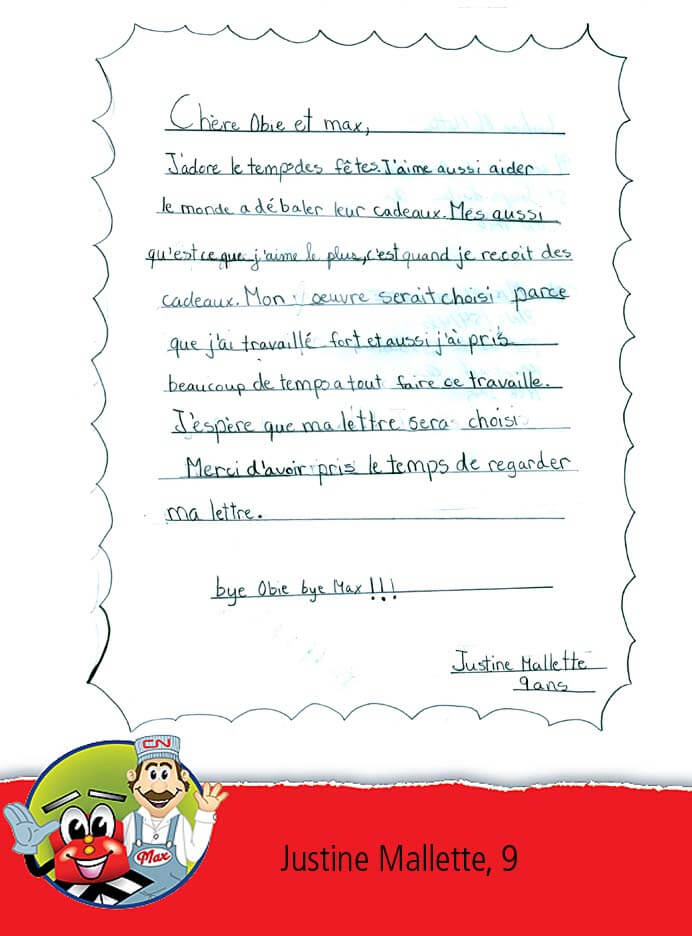 Chère Obie et max,
J'adore le temps des fêtes. J'aime aussi aider
le monde a débaler leur cadeaux. Mes aussi
qu'est ce que j'aime le plus, c'est quand je recoit des
cadeaux. Mon oeuvre serait choisi parce
que j'ai travaillé fort et aussi j'ai pris
beaucoup de temps a tout faire ce travaille.
J'éspère que ma lettre sera choisi
Merci d'avoir pris le temps de regarder
ma lettre.
bye Obie bye Max!!!
Justine Mallette
9 ans
CN
Max
Justine Mallette, 9